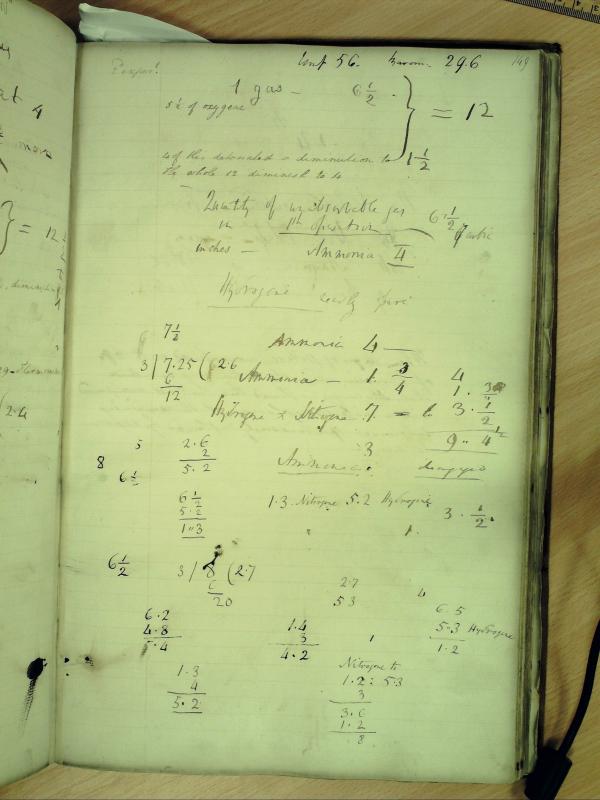 Temp 56. Barom. 29.6 149
1 gas — 6 1/2 .
5 1/2 of oxygene } = 12
4 of this detonated a diminution to 1 1/2
the whole 12 diminish to 4
Quantity of unabsorbable gas
in 1st operation — 6 1/2 cubic
inches — Ammonia 4
Hydrogene nearly pure
7 1/2 Ammonia 4 —
3 / 7.25 ( 2.6 Ammonia — 1. 3/4 4
6 1. 3/4
12
Hydrogene & Nitrogene 7 = to 3. 1/2
9.. 4
5 2.6 3
8 2 Ammonia
5.2
6 1/2
6 1/2 1.3 Nitrogene 5.2 Hydrogene 3. 1/2.
5.2
1..3
6 1/2 3 / 8 ( 2.7
6
20
2.7 4
5 3 6.5
6.2 1.4 5.3 Hydrogene
4.8 3 1 1.2
5.4 4.2
Nitrogene to
1.3 1.2 : 5.3
4 3
5.2 3.6
1.2
.8
2.4
= 12